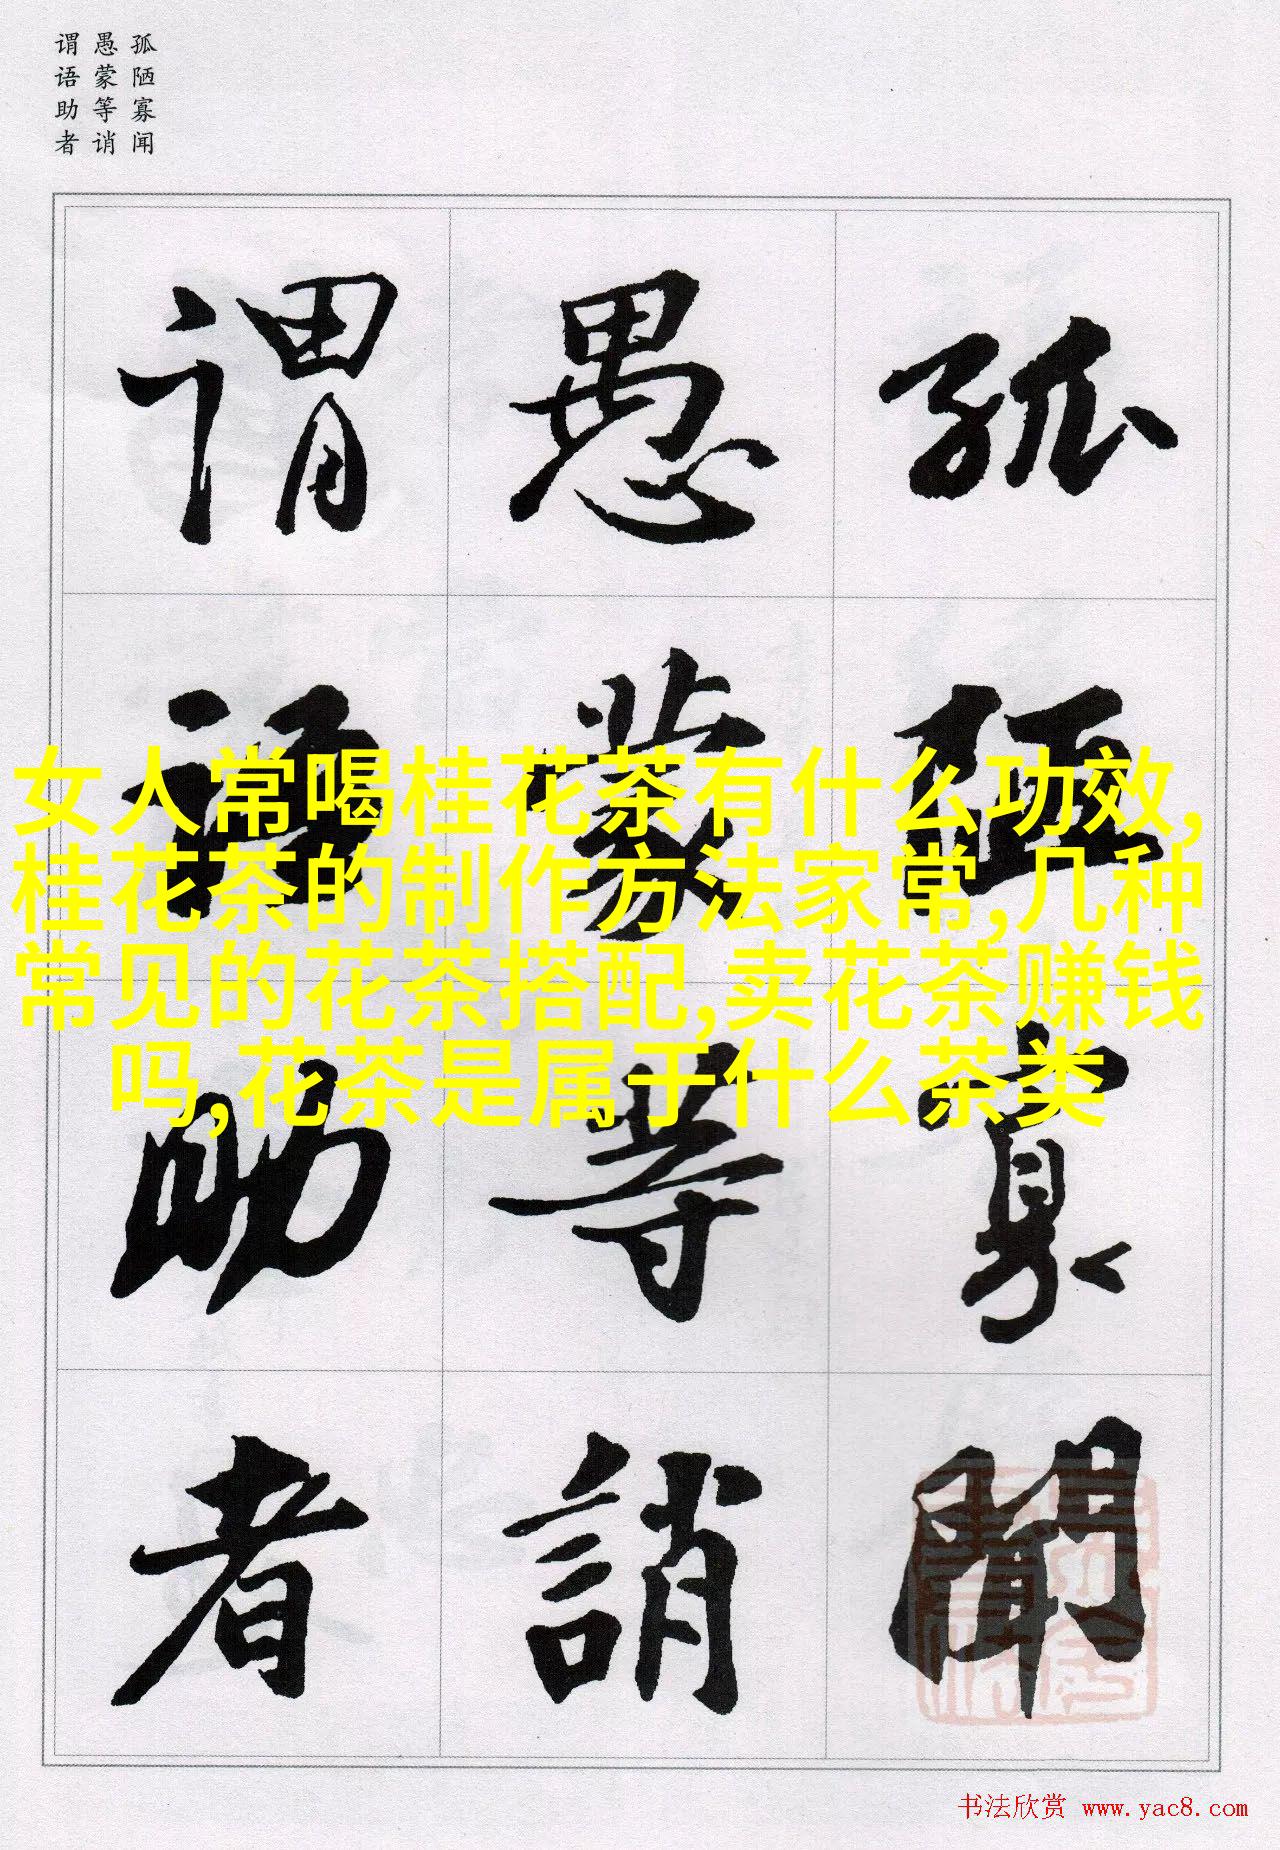 孤陋寡闻
愚蒙等诮
谓语助者
孤陋寡聞
愚蒙等誚
谓语助者
女人常喝桂花茶有什么功效,
桂花茶的制作方法家常,几种
常见的花茶搭配,卖花茶赚钱
吗,花茶是属于什么茶类
书法欣赏 www.yac8.com